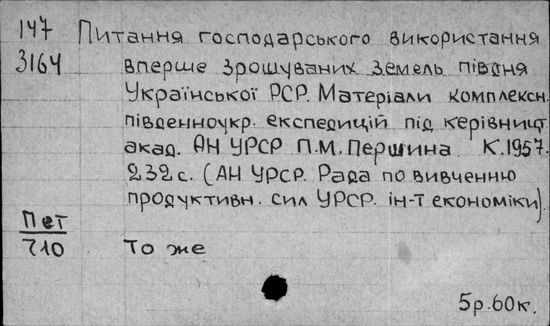 147 Питання господарського використання
3164 вперше зрошуваних земель півдня
Української РСР. Матеріали комплексн.
південноукр. експедицій під керівницт
акад. АН УРСР П.М.Першина. К.1957.
232 с. (АН УРСР. Рада по вивченню
продуктивн. сил УРСР. ін-т економіки).
Пет
710 То же
5р.60к.